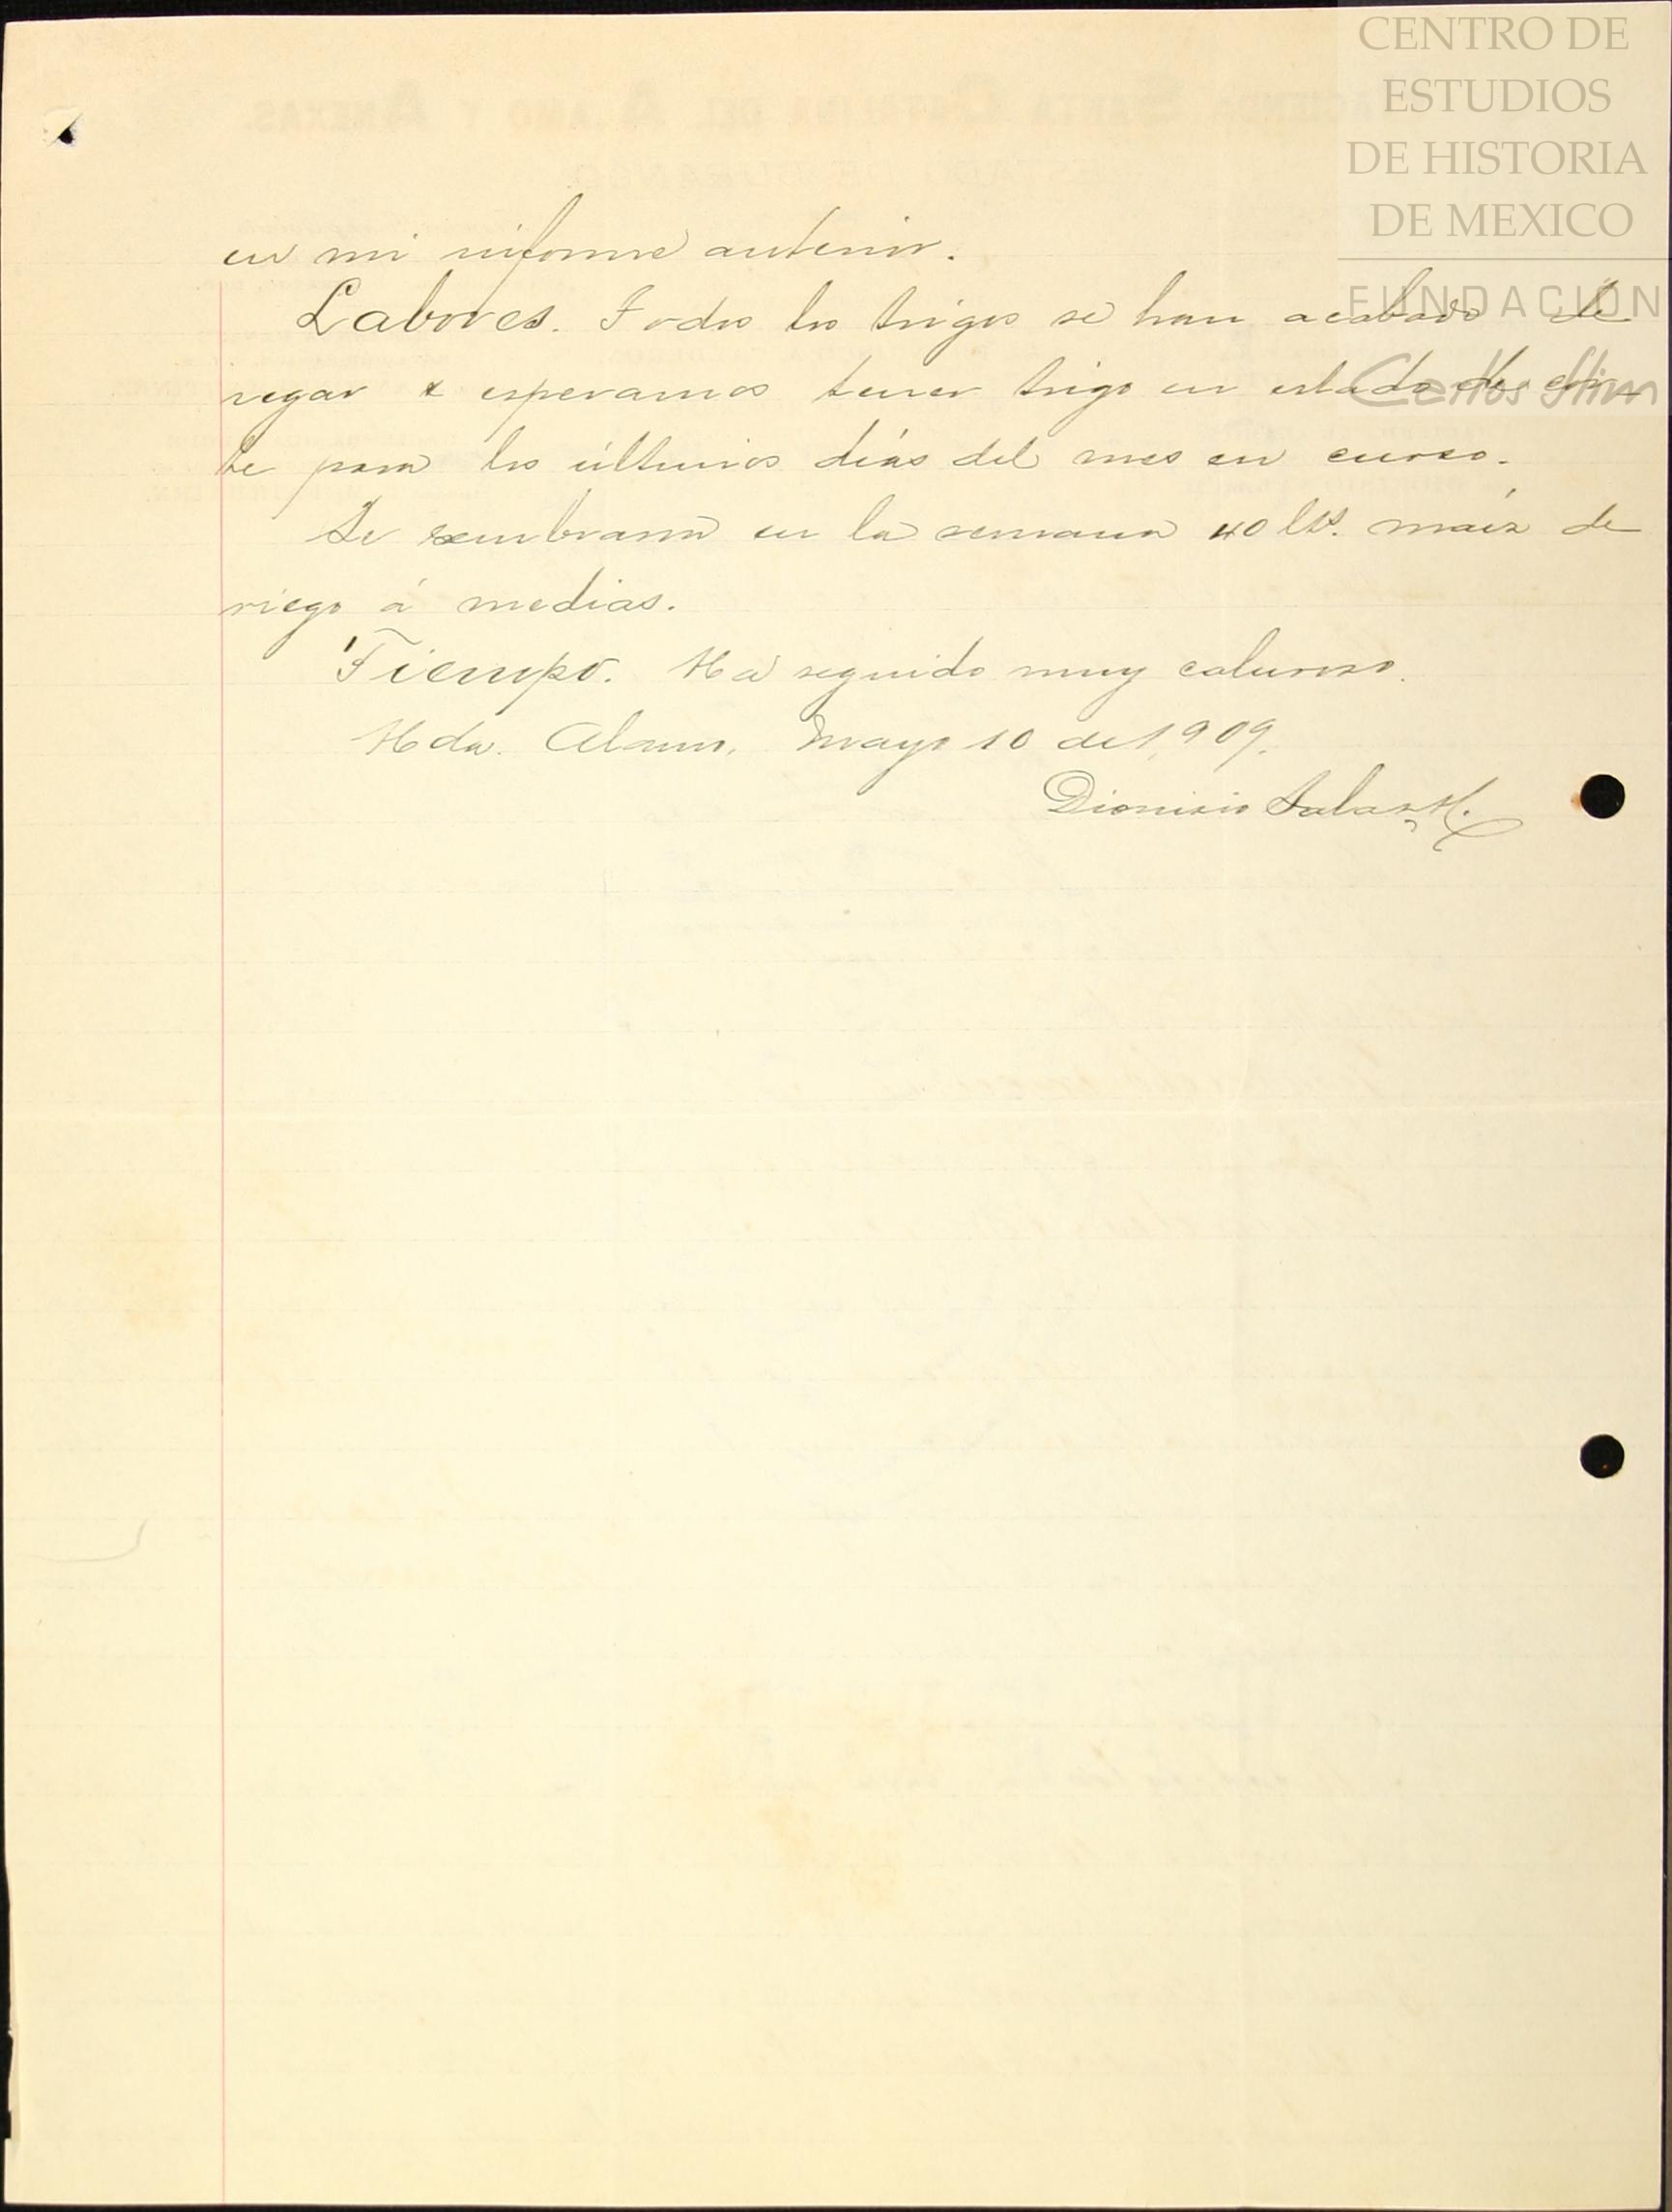 CENTRO DE
ESTUDIOS
DE HISTORIA
DE MEXICO
FUNDACION
Carlos Slim
en mi informe anterior.
Labores. Todos los trigos se han acabado de
regar & esperamos tener trigo en estado de cor-
te para los últimos días del mes en curso.
Se sembraron en la semana 40 lts. maíz de
riego á medias.
Tiempo. Ha seguido muy caluroso.
Hda. Alamo, Mayo 10 de 1909.
Dionisio Salas H.